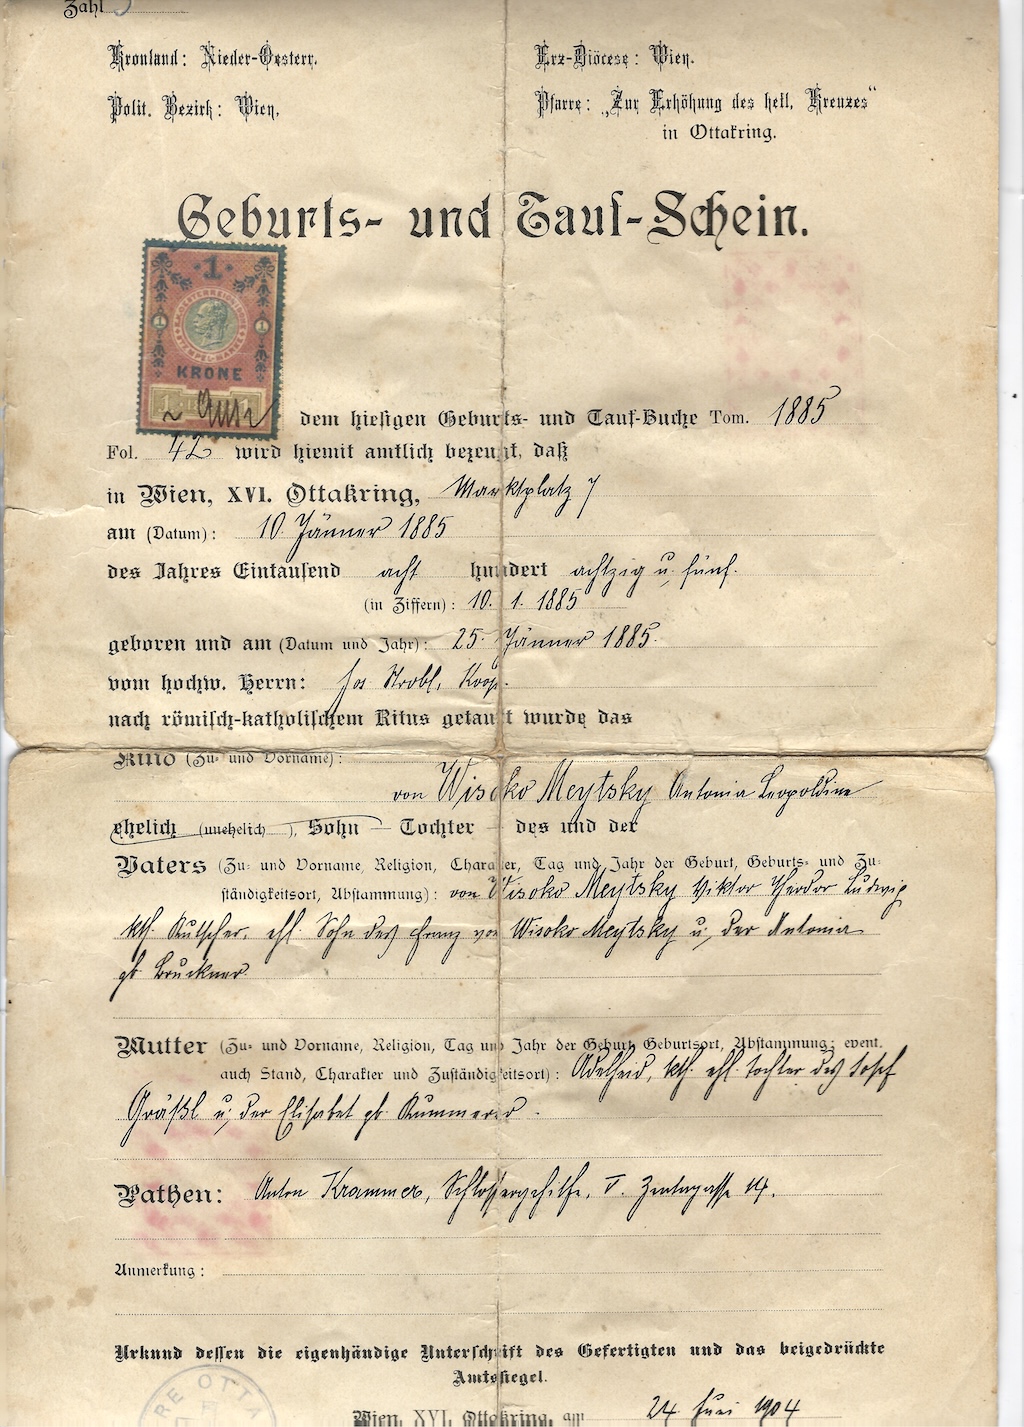 Zahl
Kronland: Nieder-Oesterr.
Erz-Diöcese: Wien.
Polit. Bezirk: Wien.
Pfarre: „Zur Erhöhung des heil. Kreuzes“
in Ottakring.
Geburts- und Tauf-Schein.
1
1 1
KRONE
Aus dem hiesigen Geburts- und Tauf-Buche Tom. 1885
Fol. 42 wird hiemit amtlich bezeugt, daß
in Wien, XVI. Ottakring, Marktplatz 7
am (Datum): 10. Jänner 1885
des Jahres Eintausend acht hundert achtzig u. fünf.
(in Ziffern): 10. 1. 1885
geboren und am (Datum und Jahr): 25. Jänner 1885.
vom hochw. Herrn: Jos Strobl, Koop.
nach römisch-katholischem Ritus getauft wurde das
Kind (Zu- und Vorname):
von Wisoko Meytsky Antonia Leopoldine
ehelich (unehelich ), Sohn — Tochter — des und der
Vaters (Zu- und Vorname, Religion, Charakter, Tag und Jahr der Geburt, Geburts- und Zu-
ständigkeitsort, Abstammung): von Wisoko Meytsky Viktor Theodor Ludwig
kth. Kutscher, ehl. Sohn des Franz von Wisoko Meytsky u. der Antonia
gb Bruckner.
Mutter (Zu- und Vorname, Religion, Tag und Jahr der Geburt, Geburtsort, Abstammung; event.
auch Stand, Charakter und Zuständigkeitsort): Adelheid, kth. ehl. Tochter des Josef
Gräßl u. der Elisabet gb. Kummerer.
Pathen: Anton Krammer, Schlossergehilfe, V. 14.
Anmerkung:
Urkund dessen die eigenhändige Unterschrift des Gefertigten und das beigedrückte
Amtssiegel.
RE OTTA
Wien, XVI. Ottakring, am 24 Juni 1904